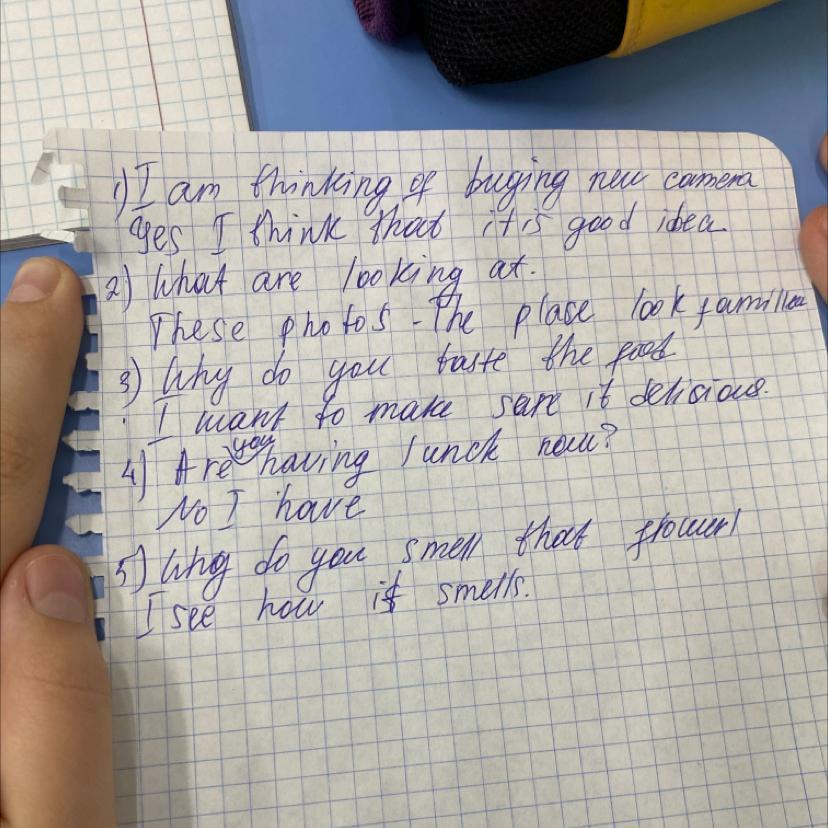 1) I am thinking of buying new camera
Yes I think that it is good idea
2) What are looking at.
These photos - The place look familiar
3) Why do you taste the food
I want to make sure it delicious.
4) Are you having lunck now?
No I have
5) Why do you smell that flower
I see how it smells.